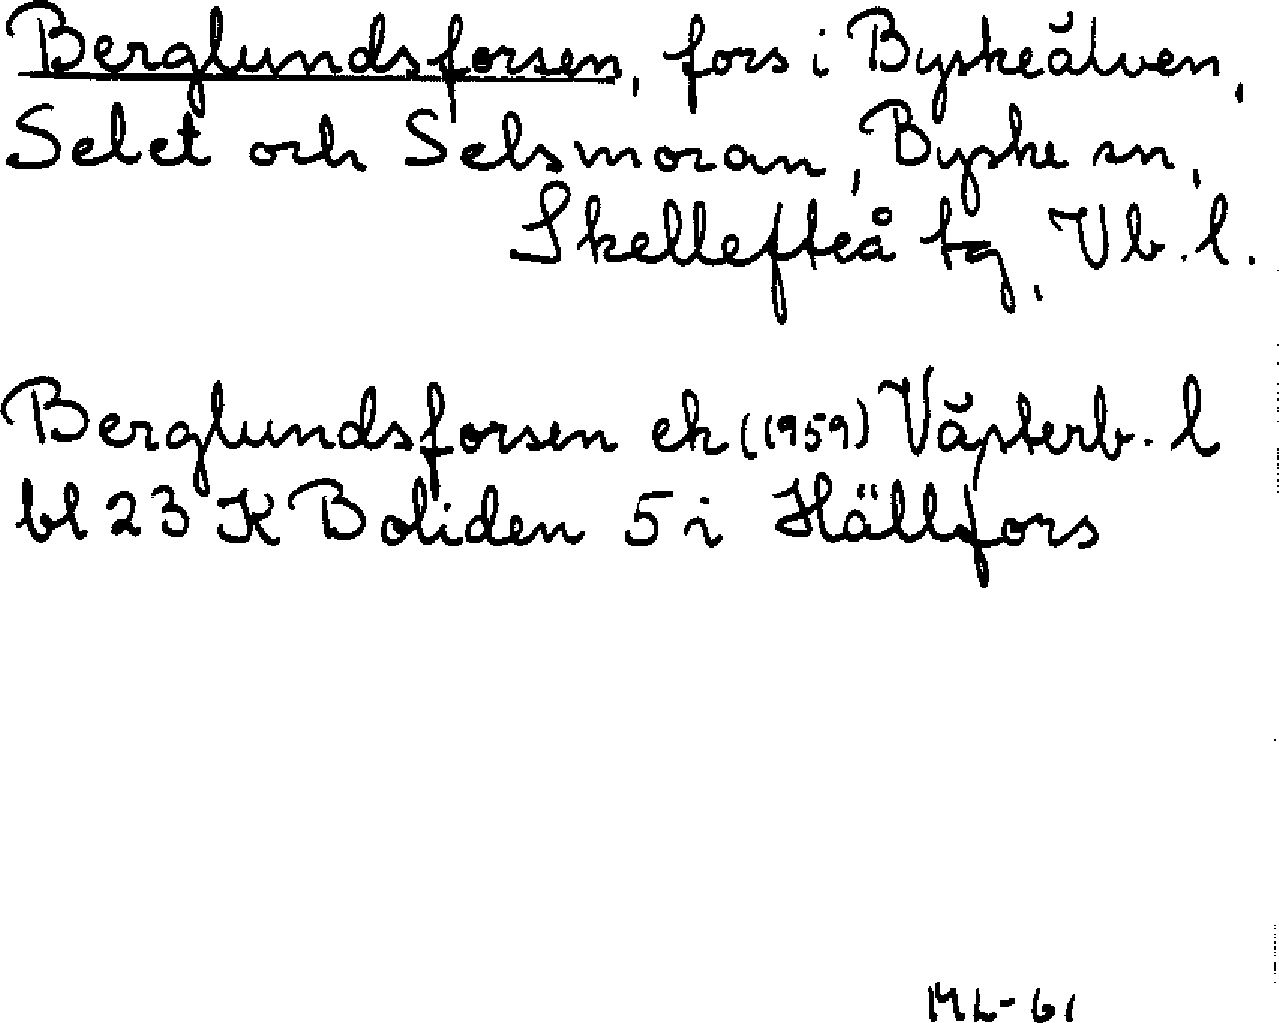 Berglundsforsen, fors i Byskeälven,
Selet och Selsmoran, Byske sn,
Skellefteå tg, Vb. l.
Berglundsforsen ek (1959) Västerb. l
bl 23 K Boliden 5 i Hällfors
ML-61